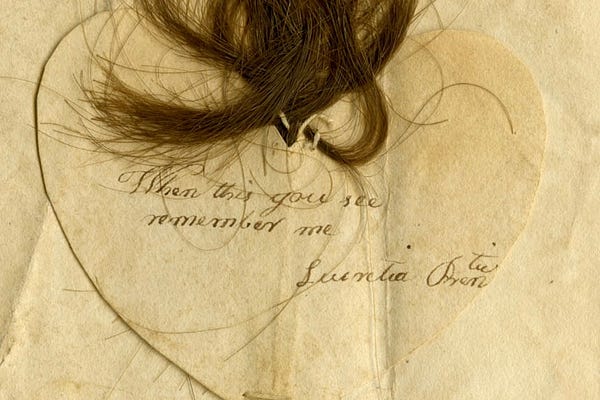 When this you see
remember me
Lucretia